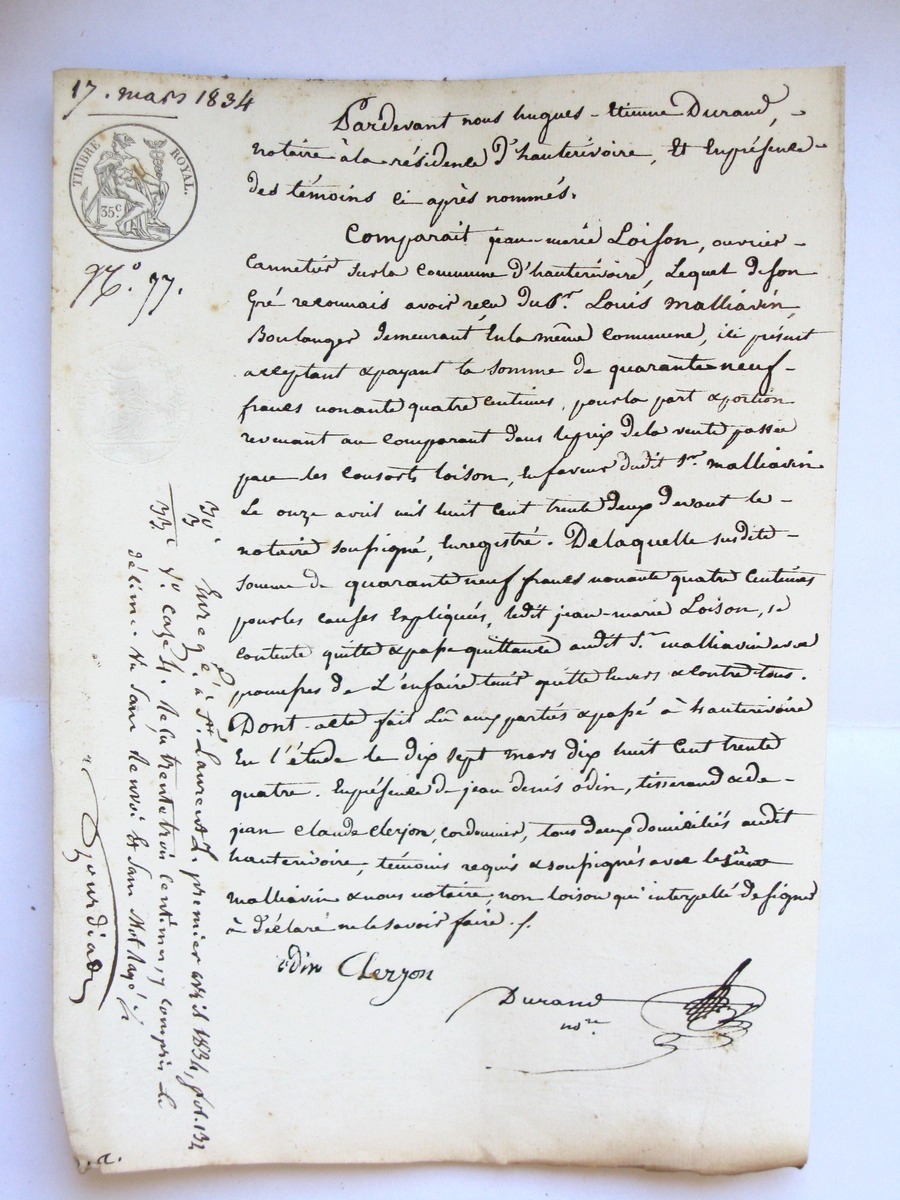 17. mars 1834
TIMBRE ROYAL.
35c
No. 77.
Pardevant nous hugues-Etienne Durand,
notaire à la résidence d'hauterivoire, Et En présence
des témoins ci après nommés.
Comparait jean-marie Loison, ouvrier
sur la commune d'hauterivoire, Lequel de son
gré reconnais avoir reçu du Sr. Louis malliavin,
Boulanger demeurant En la même commune, ici présent
acceptant & payant la somme de quarante neuf
francs nonante quatre centimes, pour la part & portion
revenant au comparant dans le prix de la vente passée
par les consorts loison, En faveur dudit Sr. malliavin
Le onze avril mil huit cent trente deux devant le
notaire soussigné, Enregistré. De laquelle susdite
somme de quarante neuf francs nonante quatre centimes
pour les causes Expliquées, ledit jean-marie Loison, se
contente quitte & passe quittance audit Sr. malliavin avec
promesses de L'enfaire tenir quitte Envers & contre tous.
Dont-acte fait Lû aux parties & passé à hauterivoire
En l'étude le dix sept mars dix huit cent trente
quatre. En présence de jean denis odin, tisserand & de
jean claude clerjon, cordonnier, tous deux domiciliés audit
hauterivoire, témoins requis & soussignés avec le
malliavin & nous notaire, non loison qui interpellé de signer
à déclaré ne le savoir faire ./.
odin Clerjon
Durand
nore
30c
3
33c
Enregé. à St. Laurent L. premier avril 1834, fol. 134
Vo. case 4. Reçu trente trois centimes, y compris le
décime. Sans renvoi Et Sans Mot Rayé ./.
Gourdiat